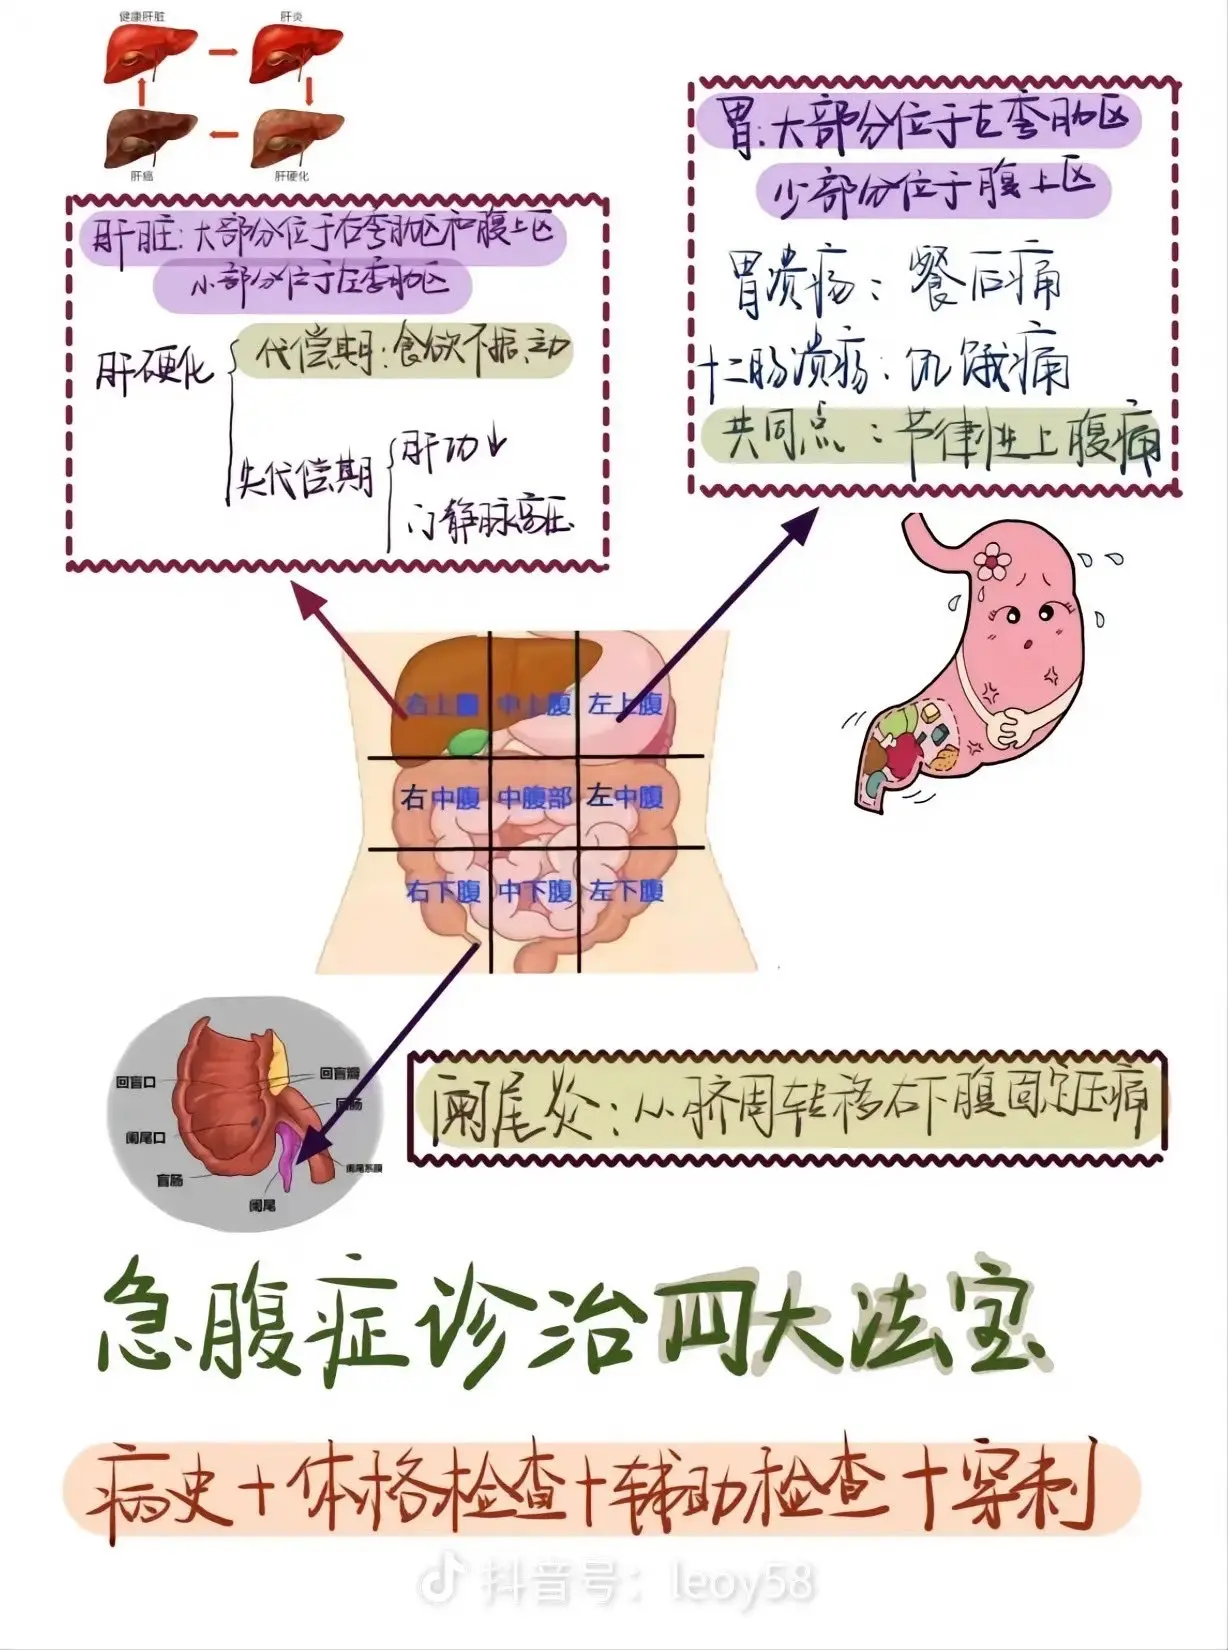 健康肝脏
肝炎
肝癌
肝硬化
肝脏:大部分位于右季肋区和腹上区
小部分位于左季肋区
肝硬化
代偿期:食欲不振、
失代偿期
肝功↓
门静脉高压
胃:大部分位于左弯肋区
少部分位于腹上区
胃溃疡:餐后痛
十二肠溃疡:饥饿痛
共同点:节律性上腹痛
右上腹 中上腹 左上腹
右中腹 中腹部 左中腹
右下腹 中下腹 左下腹
回盲口
回盲瓣
回肠
阑尾口
盲肠
阑尾系膜
阑尾
阑尾炎:从脐周转移右下腹固定压痛
急腹症诊治四大法宝
病史+体格检查+辅助检查+穿刺
抖音号:leoy58